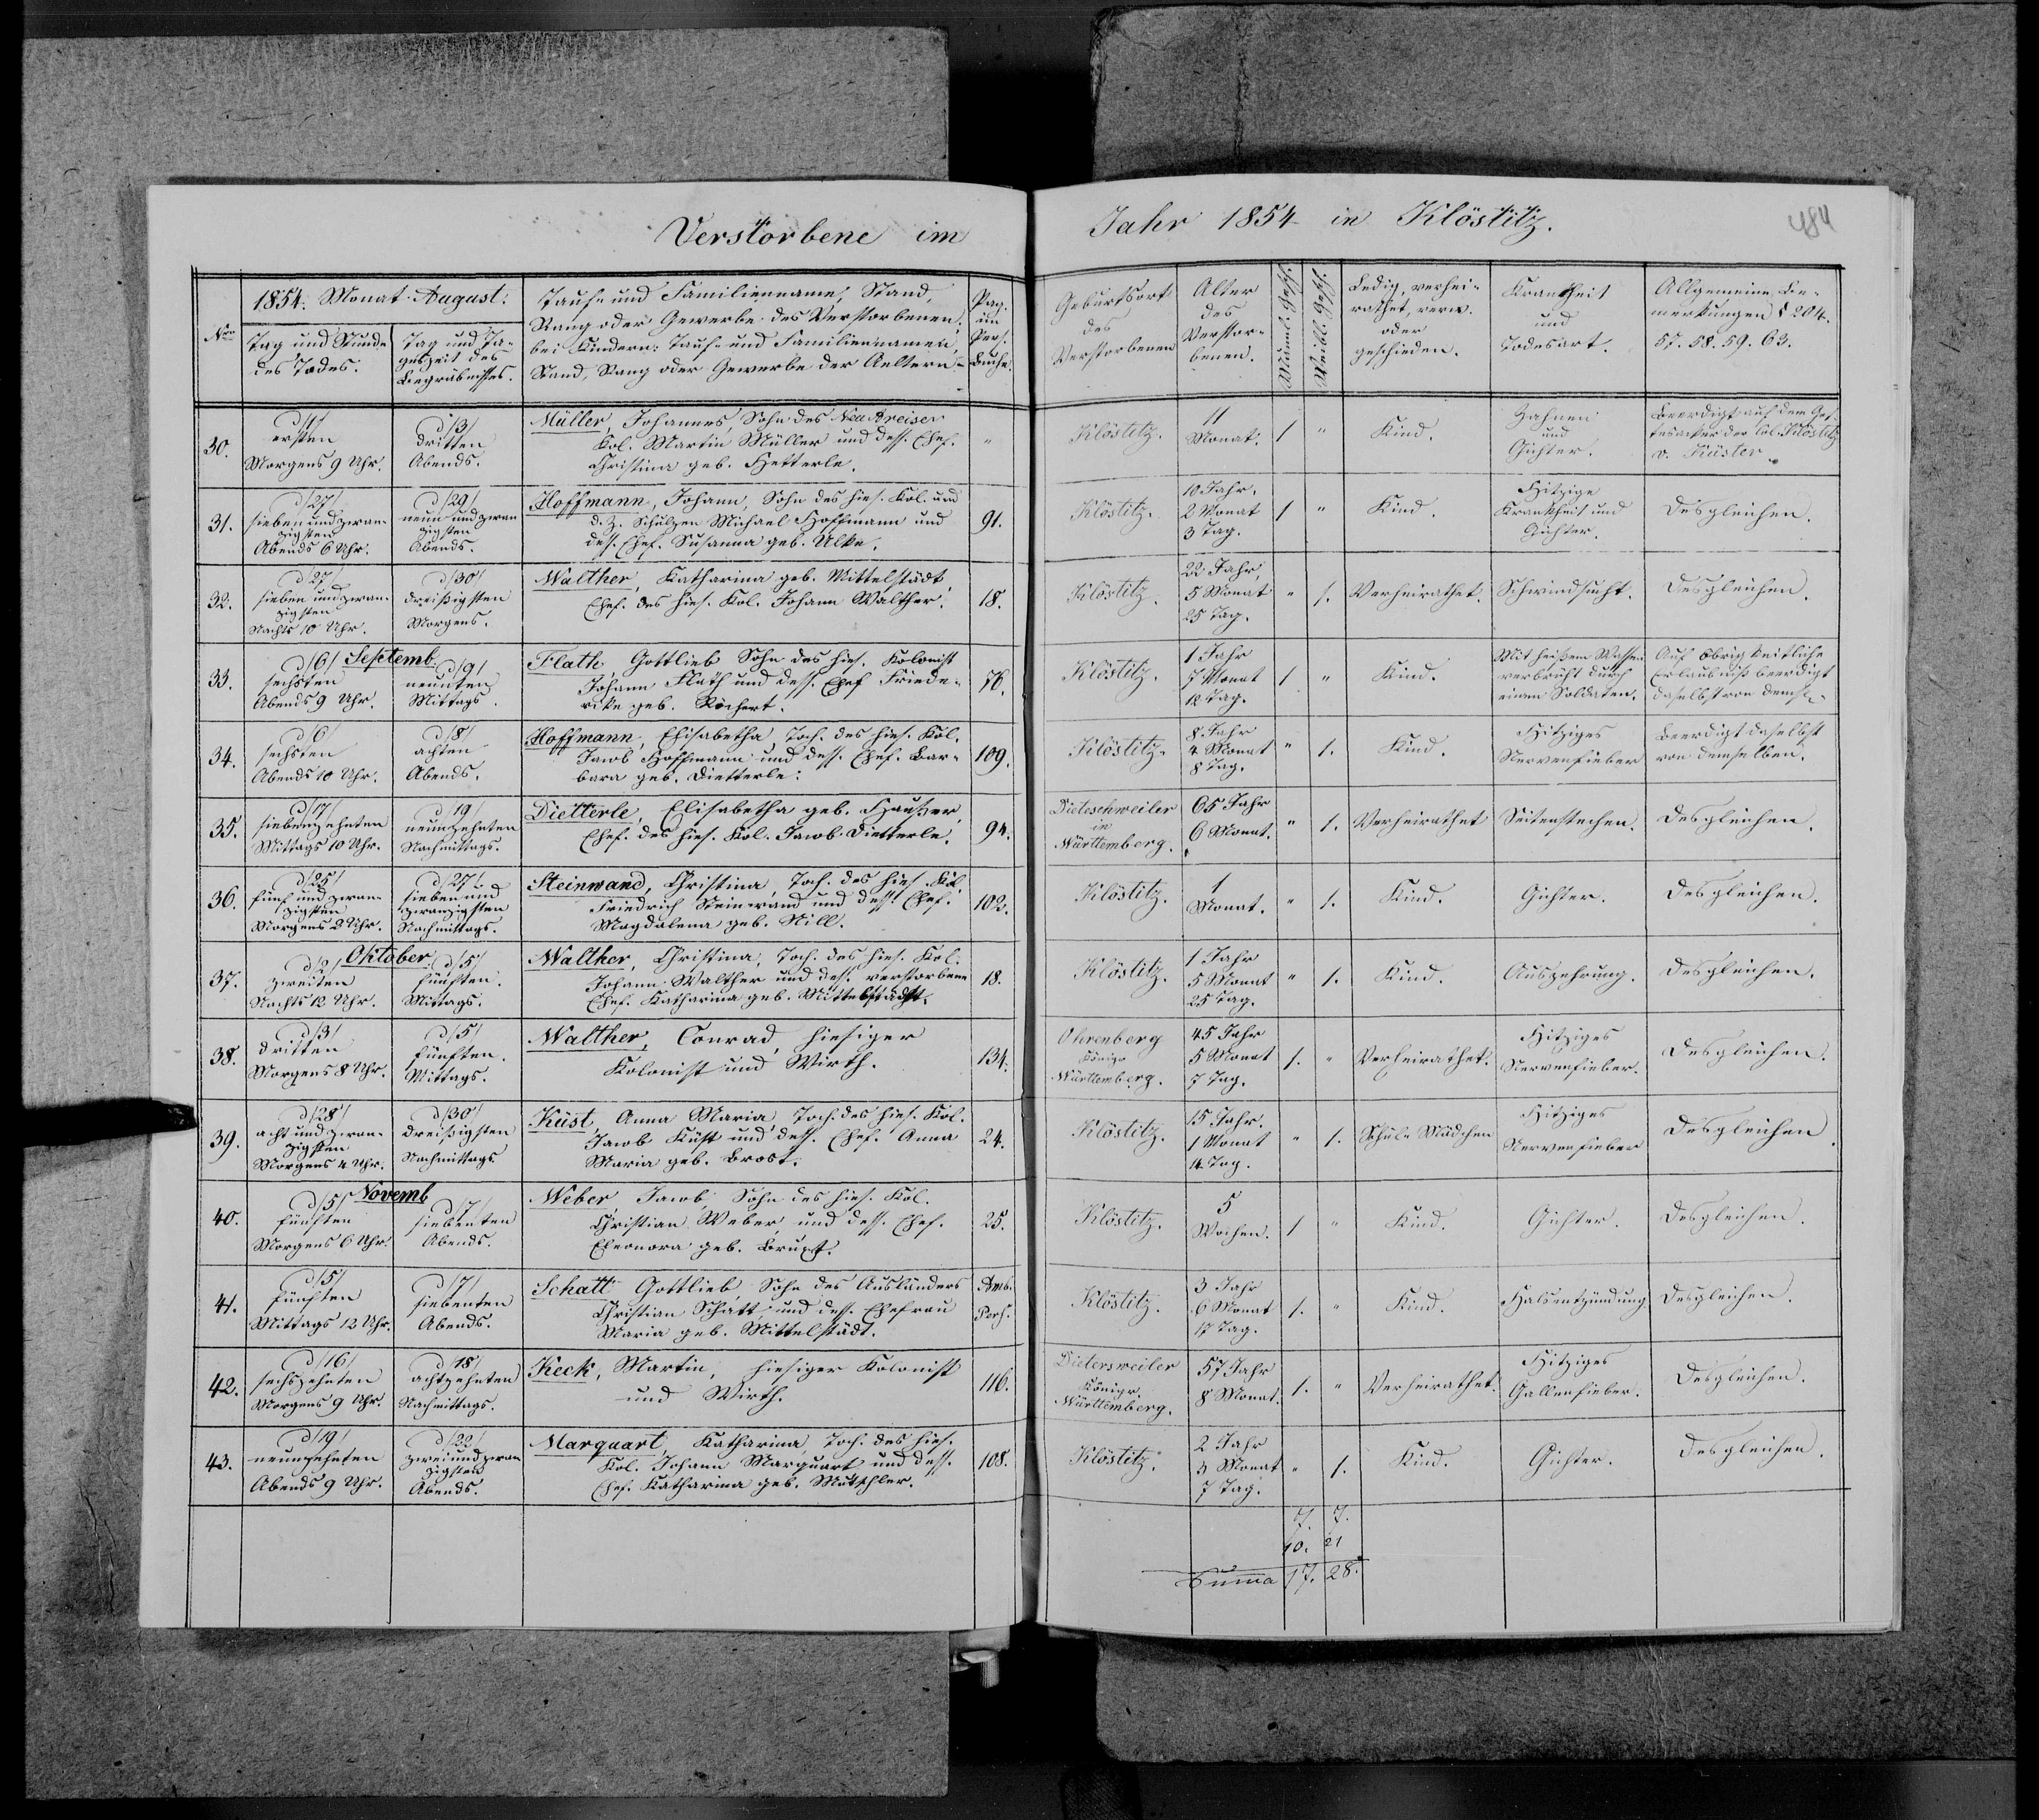 Verstorbene im Jahr 1854 in Klöstitz.
484
Nro
1854. Monat August.
Tag und Stunde
des Todes.
Tag und Ta-
geszeit des
Begräbnisses.
Tauf- und Familienname, Stand,
Rang oder Gewerbe des Verstorbenen,
bei Kindern: Tauf- und Familiennamen,
Stand, Rang oder Gewerbe der Aeltern.
Pag.
im
Pers.
Buche.
Geburtsort
des
Verstorbenen
Alter
des
Verstor-
benen.
Männl. Geschl.
Weibl. Geschl.
Ledig, verhei-
rathet, verw.
oder
geschieden.
Krankheit
und
Todesart.
Allgemeine Be-
merkungen § 204.
57. 58. 59. 63.
30.
d/1/
ersten
Morgens 9 Uhr.
d/3/
dritten
Abends.
Müller, Johannes, Sohn des Neu Areiser
Kol. Martin Müller und dess. Ehef.
Christina geb. Hetterle.
"
Klöstitz.
11
Monat.
1
"
Kind.
Zahnen
und
Gichter.
Beerdigt auf dem Got-
tesacker der Col. Klöstitz
v. Küster.
31.
d/27/
sieben und zwan-
zigsten
Abends 6 Uhr.
d/29/
neun und zwan
zigsten
Abends.
Hoffmann, Johann, Sohn des hies. Kol. und
d. Z. Schulzen Michael Hoffmann und
dess. Ehef. Susanna geb. Ulke.
91.
Klöstitz.
10 Jahr.
2 Monat
3 Tag.
1
"
Kind.
Hitzige
Krankheit und
Gichter.
Desgleichen.
32.
d/27/
sieben und zwan-
zigsten
Nachts 10 Uhr.
d/30/
dreißigsten
Morgens.
Walther, Katharina geb. Mittelstädt,
Ehef. des hies. Kol. Johann Walther.
18.
Klöstitz.
22 Jahr,
5 Monat
25 Tag.
"
1.
Verheirathet.
Schwindsucht.
Desgleichen.
Septemb.
33.
d/6/
sechsten
Abends 9 Uhr.
d/9/
neunten
Mittags.
Flath, Gottlieb Sohn des hies. Kolonist
Johann Flath und dess. Ehef. Friede-
rike geb. Röchert.
76.
Klöstitz.
1 Jahr
7 Monat
12 Tag.
1
"
Kind.
Mit heißem Wasser
verbrüht durch
einen Soldaten.
Auf Obrigkeitliche
Erlaubniß beerdigt
daselbst von demsel-
34.
d/6/
sechsten
Abends 10 Uhr.
d/8/
achten
Abends.
Hoffmann, Elisabetha, Toch. des hies. Kol.
Jacob Hoffmann und dess. Ehef. Bar-
bara geb. Dietterle.
109.
Klöstitz.
8 Jahr
4 Monat
8 Tag.
"
1.
Kind.
Hitziges
Nervenfieber
Beerdigt daselbst
von demselben.
35.
d/17/
siebenzehnten
Mittags 10 Uhr.
d/19
neunzehnten
Nachmittags.
Dietterle, Elisabetha geb. Haußer,
Ehef. des hies. Kol. Jacob Dietterle.
94.
Dieteschweiler
in
Württemberg.
65 Jahr
6 Monat.
"
1.
Verheirathet
Seitenstechen.
Desgleichen.
36.
d/25/
fünf und zwan-
zigsten
Morgens 2 Uhr.
d/27/
sieben und
zwanzigsten
Nachmittags.
Steinwand, Christina, Toch. des hies. Kol.
Friedrich Steinwand und dess. Ehef.
Magdalena geb. Nill.
102.
Klöstitz.
1
Monat.
"
1.
Kind.
Gichter.
Desgleichen.
Oktober
37.
d/2/
zweiten
Nachts 12 Uhr.
d/5/
fünften.
Mittags.
Walther, Christina, Toch. des hies. Kol.
Johann Walther und dess. verstorbene
Ehef. Katharina geb. Mittelstädt.
18.
Klöstitz.
1 Jahr
5 Monat
25 Tag.
"
1.
Kind.
Auszehrung.
Desgleichen.
38.
d/3/
dritten
Morgens 8 Uhr.
d/5/
fünften.
Mittags.
Walther, Conrad, hiesiger
Kolonist und Wirth.
134.
Ohrenberg
Königr.
Württemberg.
45 Jahr
5 Monat
7 Tag.
1.
"
Verheirathet.
Hitziges
Nervenfieber.
Desgleichen.
39.
d/28/
acht und zwan-
zigsten
Morgens 4 Uhr.
d/30/
dreißigsten
Nachmittags.
Küst, Anna Maria, Toch. des hies. Kol.
Jacob Küst und dess. Ehef. Anna
Maria geb. Brost.
24.
Klöstitz.
15 Jahr.
1 Monat
14 Tag.
"
1.
Schul-Mädchen
Hitziges
Nervenfieber
Desgleichen.
Novemb
40.
d/5/
fünften
Morgens 6 Uhr.
d/7/
siebenten
Abends.
Weber, Jacob, Sohn des hies. Kol.
Christian Weber und dess. Ehef.
Eleonora geb.
25.
Klöstitz.
5
Wochen.
1
"
Kind.
Gichter.
Desgleichen.
41.
d/5/
fünften
Mittags 12 Uhr.
d/7/
siebenten
Abends.
Schatt Gottlieb, Sohn des Ausländers
Christian Schatt und dess. Ehefrau
Maria geb. Mittelstädt.
Amb.
Pers.
Klöstitz.
3 Jahr
6 Monat
17 Tag.
1.
"
Kind.
Halsentzündung.
Desgleichen.
42.
d/16/
sechszehnten
Morgens 9 Uhr.
d/18/
achtzehnten
Nachmittags.
Keck, Martin, hiesiger Kolonist
und Wirth.
116.
Dietersweiler
Königr.
Württemberg.
57 Jahr
8 Monat.
1.
"
Verheirathet.
Hitziges
Gallenfieber.
Desgleichen.
43.
d/19/
neunzehnten
Abends 9 Uhr.
d/22/
zwei und zwan
zigsten
Abends.
Marquart, Katharina, Toch. des hies.
Kol. Johann Marquart und dess.
Ehef. Katharina geb. Motschler.
108.
Klöstitz.
2 Jahr
3 Monat
7 Tag.
"
1.
Kind.
Gichter.
Desgleichen.
7. 7.
10. 21
Summa 17. 28.